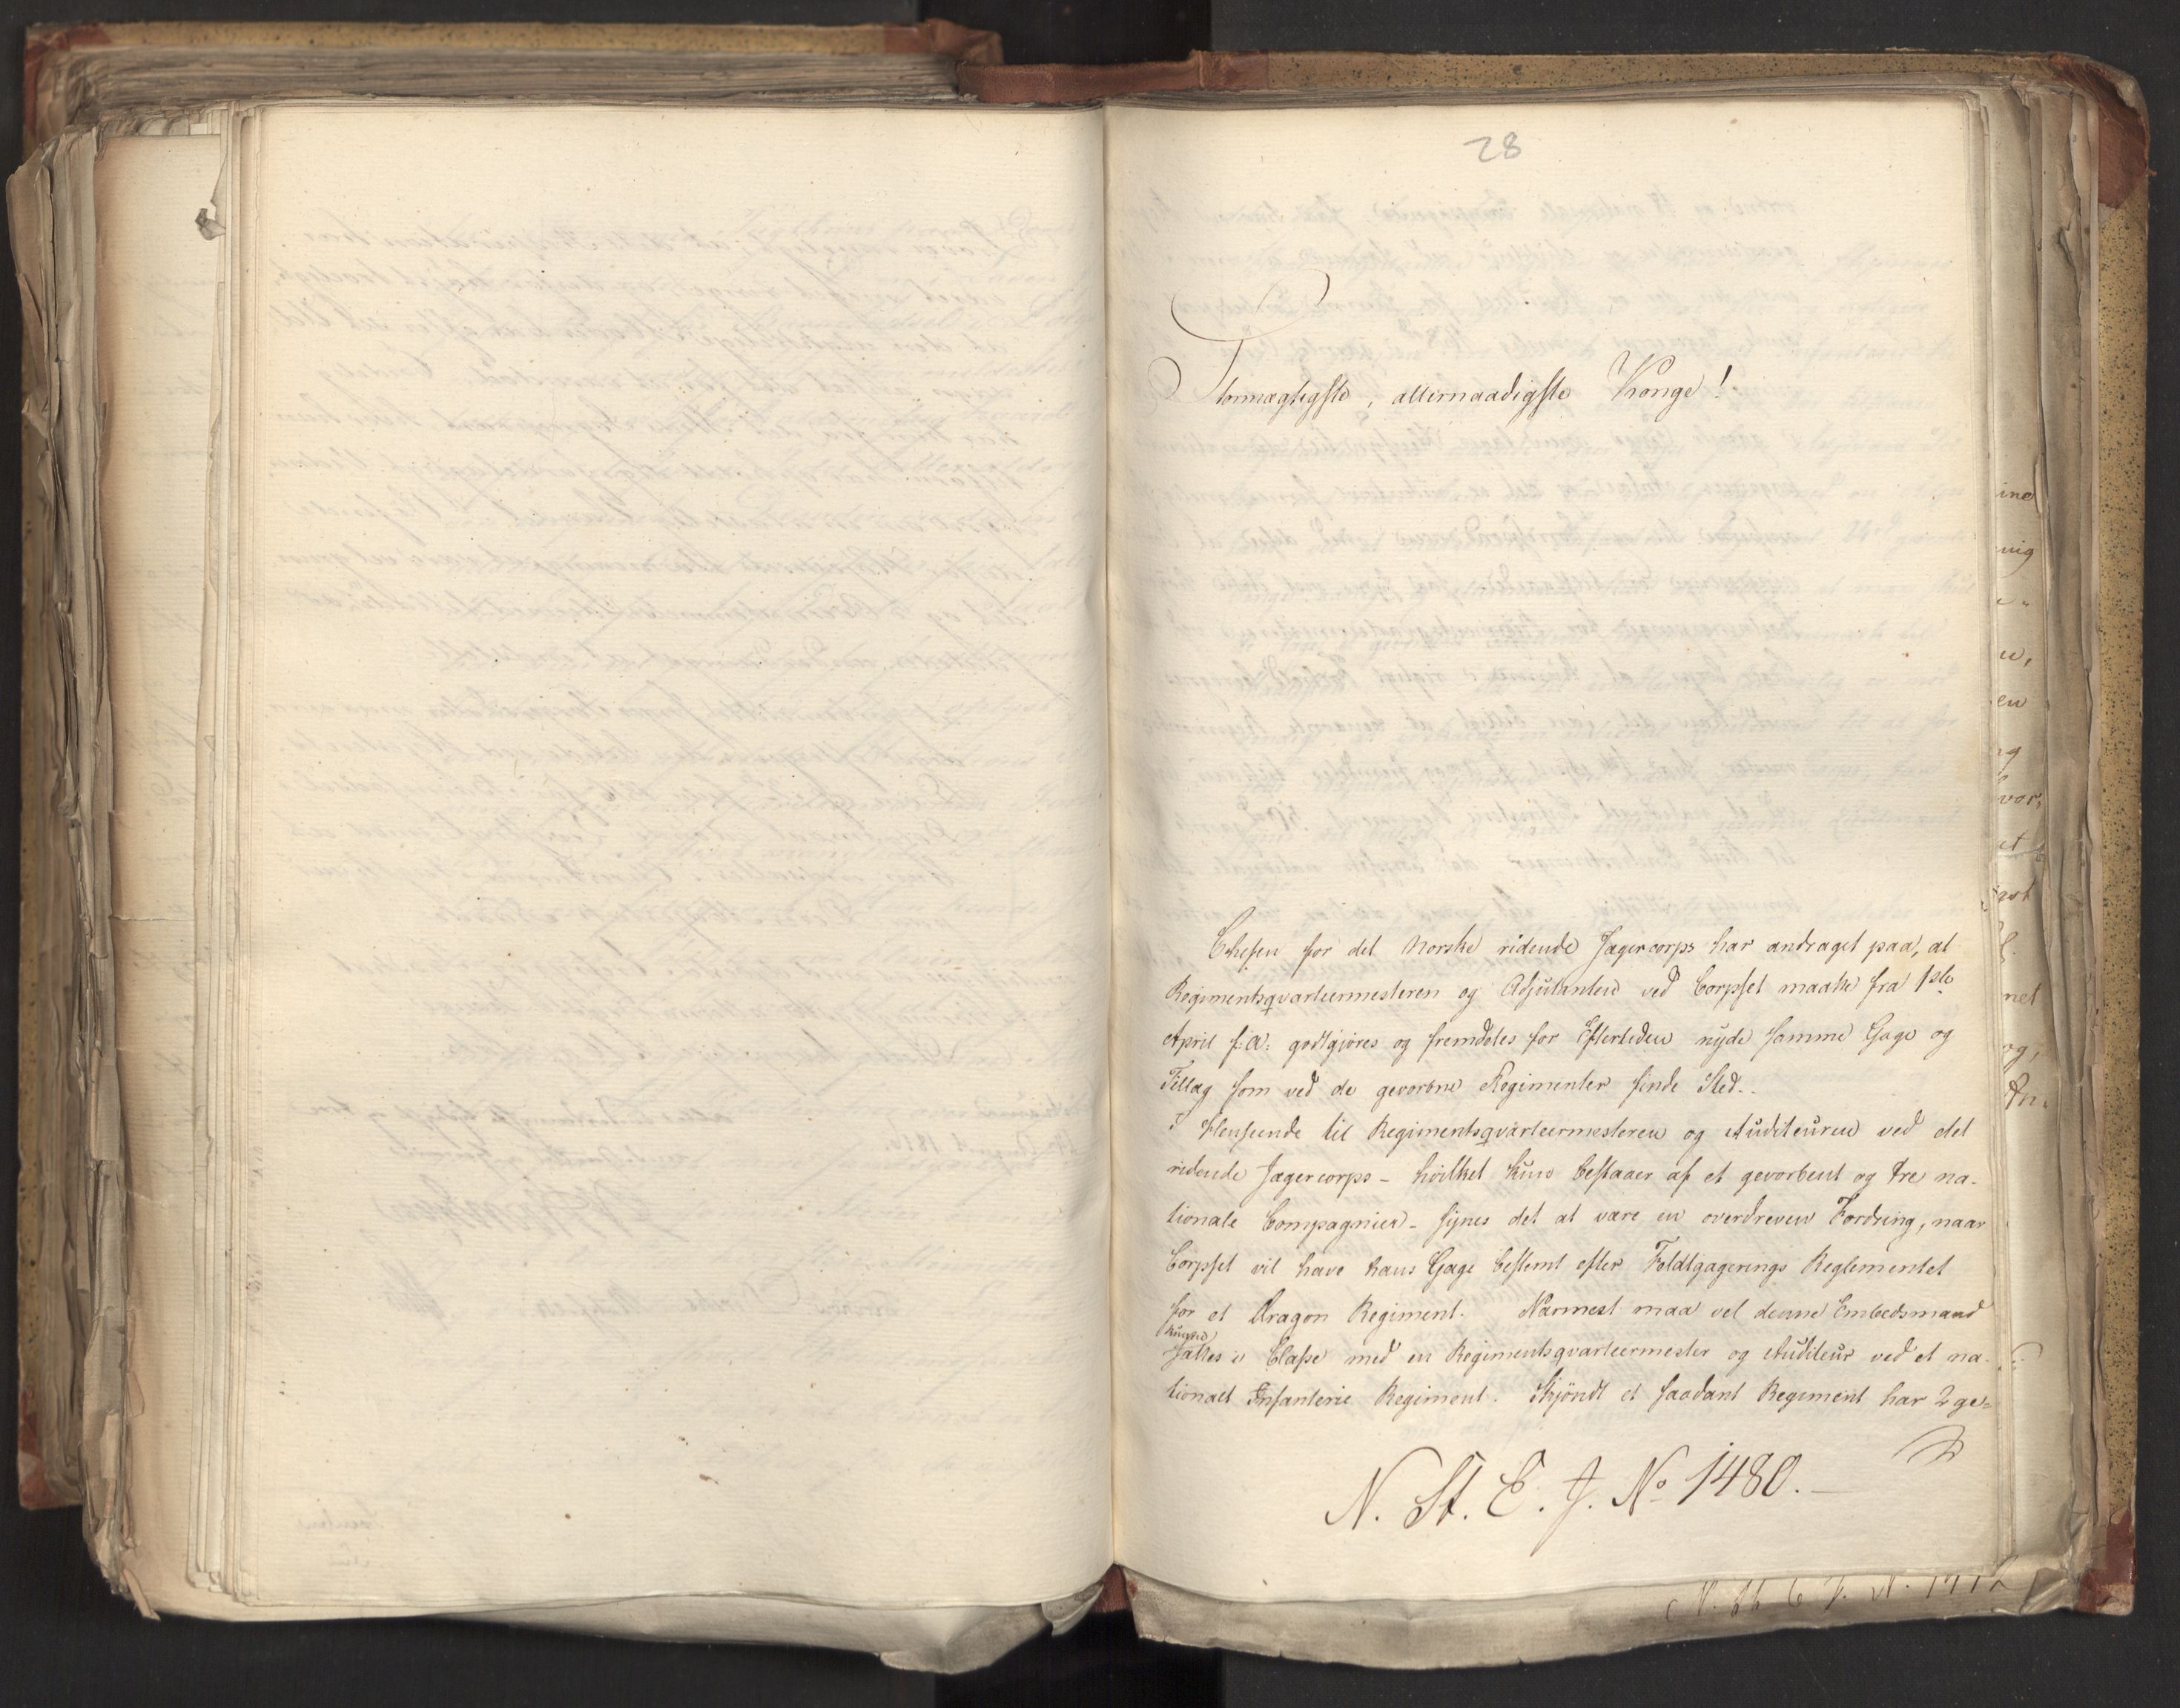 28
Stormægtigste, allernaadigste Konge!
Chefen for det Norske ridende Jægercorps har andraget paa, at
Regimentsqvarteermesteren og Adjutanten ved Corpset maatte fra 1ste
April f: A: godtgjøres og fremdeles for Eftertiden nyde samme Gage og
Tillæg som ved de gevorbne Regimenter finde Sted.
I Henseende til Regimentsqvarteermesteren og Auditeuren ved det
ridende Jægercorps – hvilket kuns bestaaer af et gevorbent og tre na-
tionale Compagnier – synes det at være en overdreven Fordring, naar
Corpset vil have hans Gage bestemt efter Feldtgagerings Reglementet
for et Dragon Regiment. Nærmest maa vel denne Embedsmand
kunne
sættes i Classe med en Regimentsqvarteermester og Auditeur ved et na-
tionalt Infanterie Regiment. Skjøndt et saadant Regiment har 2 ge-
N. St. E. J. No 1480.